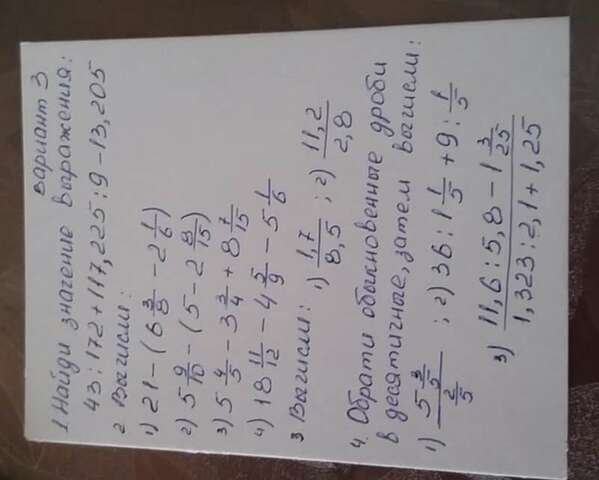 Вариант 3
1 Найди значение выражения:
43:172+117,225:9-13,205
2 Вычисли:
1) 21-(6 3/8 - 2 1/6)
2) 5 9/10 - (5-2 8/15)
3) 5 4/5 - 3 3/4 + 8 7/15
4) 18 11/12 - 4 5/9 - 5 1/6
3 Вычисли: 1) 1,7/8,5 ; 2) 11,2/2,8
4. Обрати обыкновенные дроби
в десятичные, затем вычисли:
1) 5 3/5 / 2/5 ; 2) 36:1 1/5 + 9: 1/5
3) 11,6:5,8-1 3/25 / 1,323:2,1+1,25